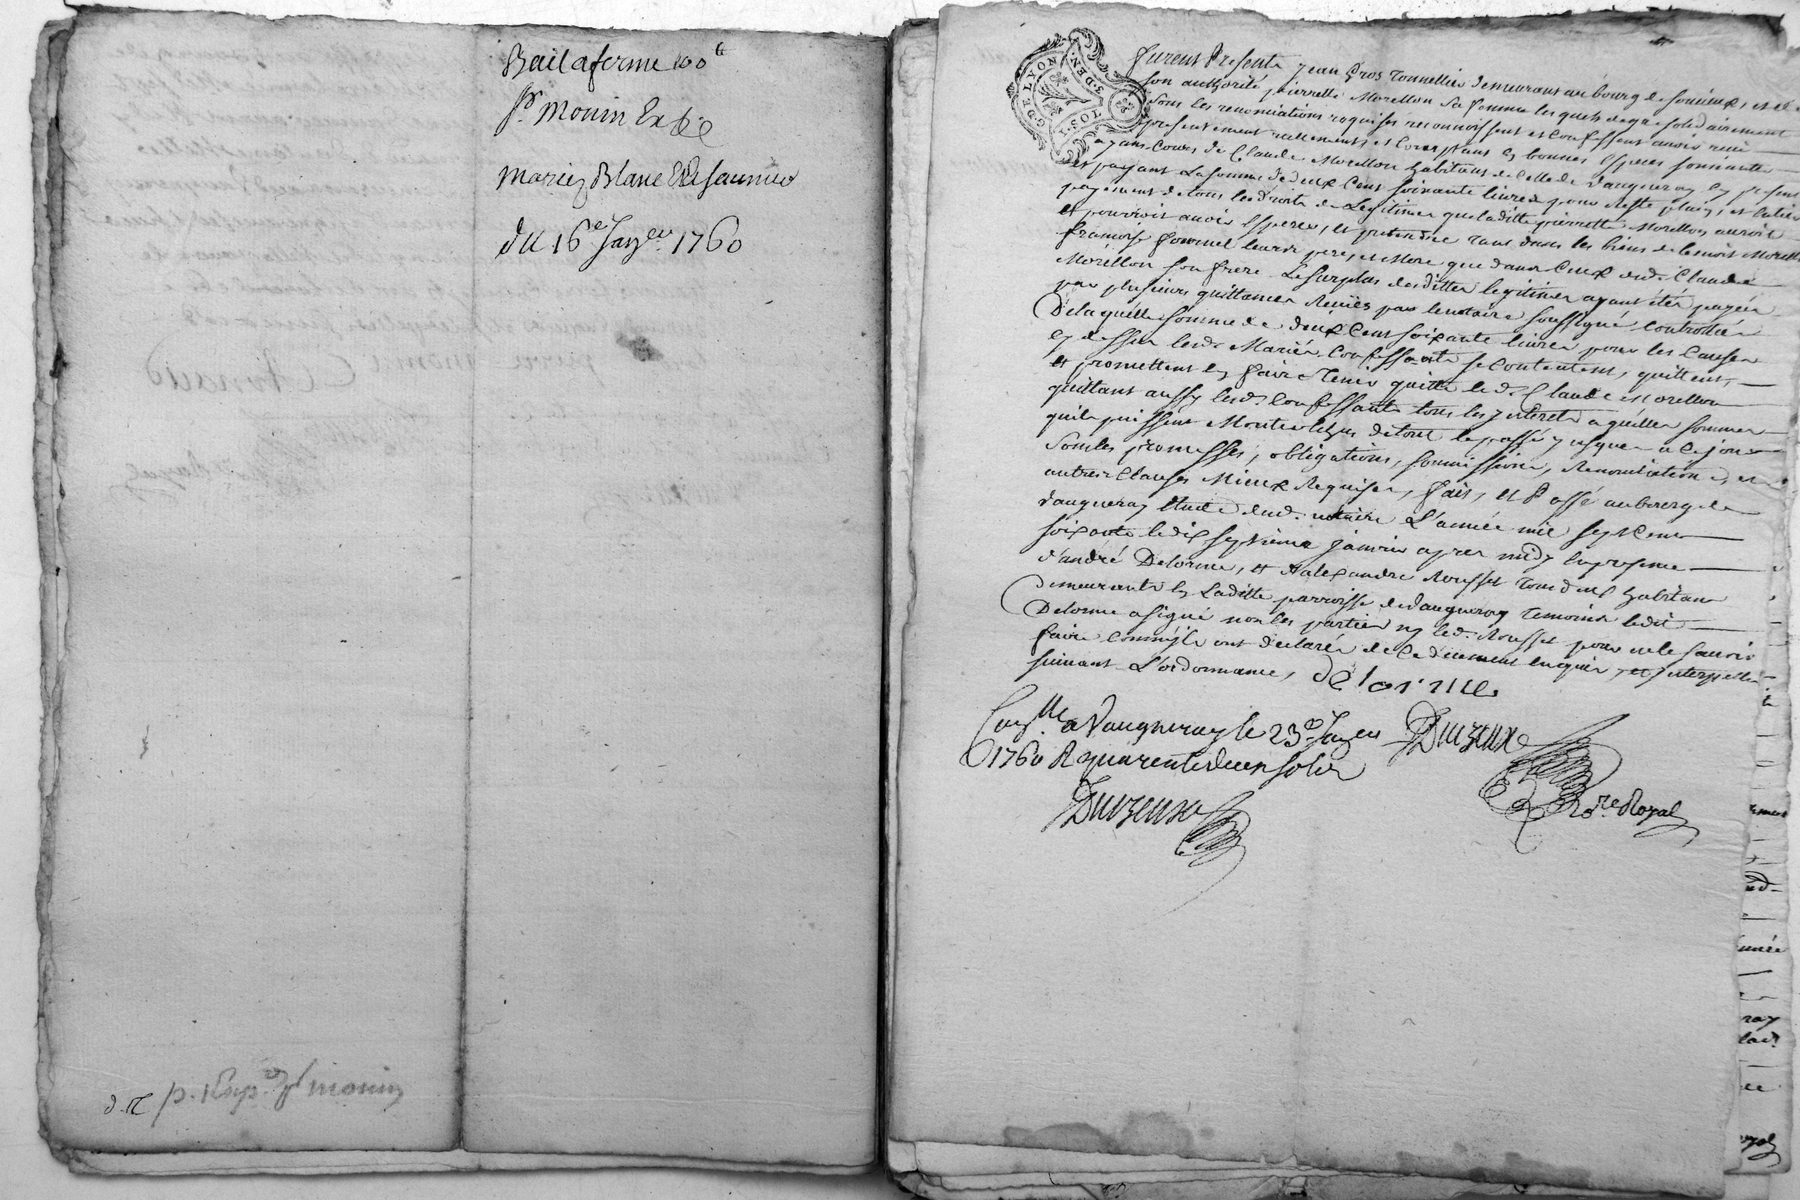 Bail a ferme 100 tt
Sr. Monin
Mariez Blanc
du 16e Janer. 1760
d. rz p. Exp. Sr monin
G. DE LYON
I. SOL. 3. DEN.
furent Presents Jean Gros Tonnellier demeurant au bourg de et de
son authorité pierrette Morellon sa femme lesquels de gré solidairement
sous les renonciations requises reconnoissent et confessent avoir receu
presentement réellement, et comptant en bonnes especes sonnantes
ayans Cours de Claude Morellon habitant de Celle de Vaugneray cy present
et payant La somme de deux Cent soixante livres pour Reste plein, et entier
payement de tous les droits de Legitimes que laditte pierrette Morellon auroit
et pourroit avoir esperer, et pretendre tant dans les biens de benoit Morellon
françoise fournel leurs pere, et Mere que dans Ceux dud. Claude
Morellon son frere. Le surplus desdittes legitimes ayant été payée
par plusieurs quittances Reçües par le notaire soussigné controllées
De laquelle somme de deux Cent soixante livres pour les Causes
cy dessus lesd. Mariés Confessants se Contentent, quittent,
et promettent en faire Tenir quitte led. Claude Morellon
quittant aussy lesd. Confessants tous les jnterets a quelles sommes
quils puissent Monter du tout le passé jusques a Ce jour
Sous les promesses, obligations, soumissions, Renonciations, et
autres Clauses Mieux Requises, fait, et Passé au bourg de
Vaugneray Etude dud. notaire L'année mil sept Cent
soixante le dix septieme janvier apres midy En presence
d'andré Delorme, et d'alexandre Rousset tous deux habitans
demeurants en Laditte parroisse de Vaugneray Temoins ledit
Delorme a signé non les parties ny led. Rousset pour ne le sçavoir
faire Comm'jls ont declaré de Ce duement enquis, et jnterpellés
suivant L'ordonnance, delorme
Conllé a Vaugneray le 23e. Janer Duizeux
1760 R quarente deux sols
Duizeux Nore Royal